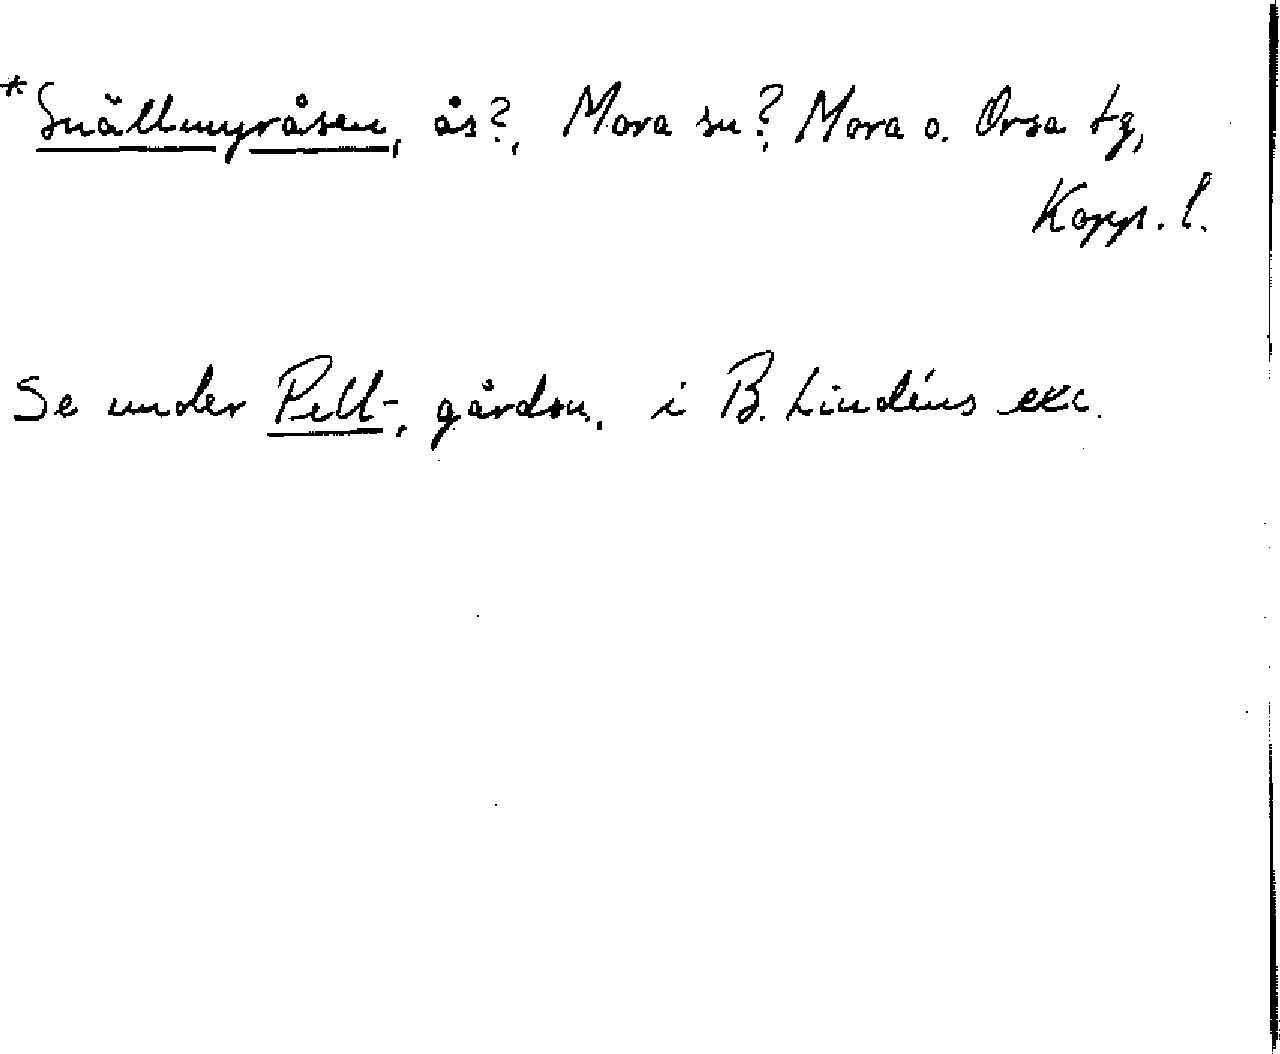 *Snällmyråsen, ås?, Mora sn?, Mora o. Orsa tg,
Kopp. l.
Se under Pell-, gårdsn., i B. Lindéns exc.